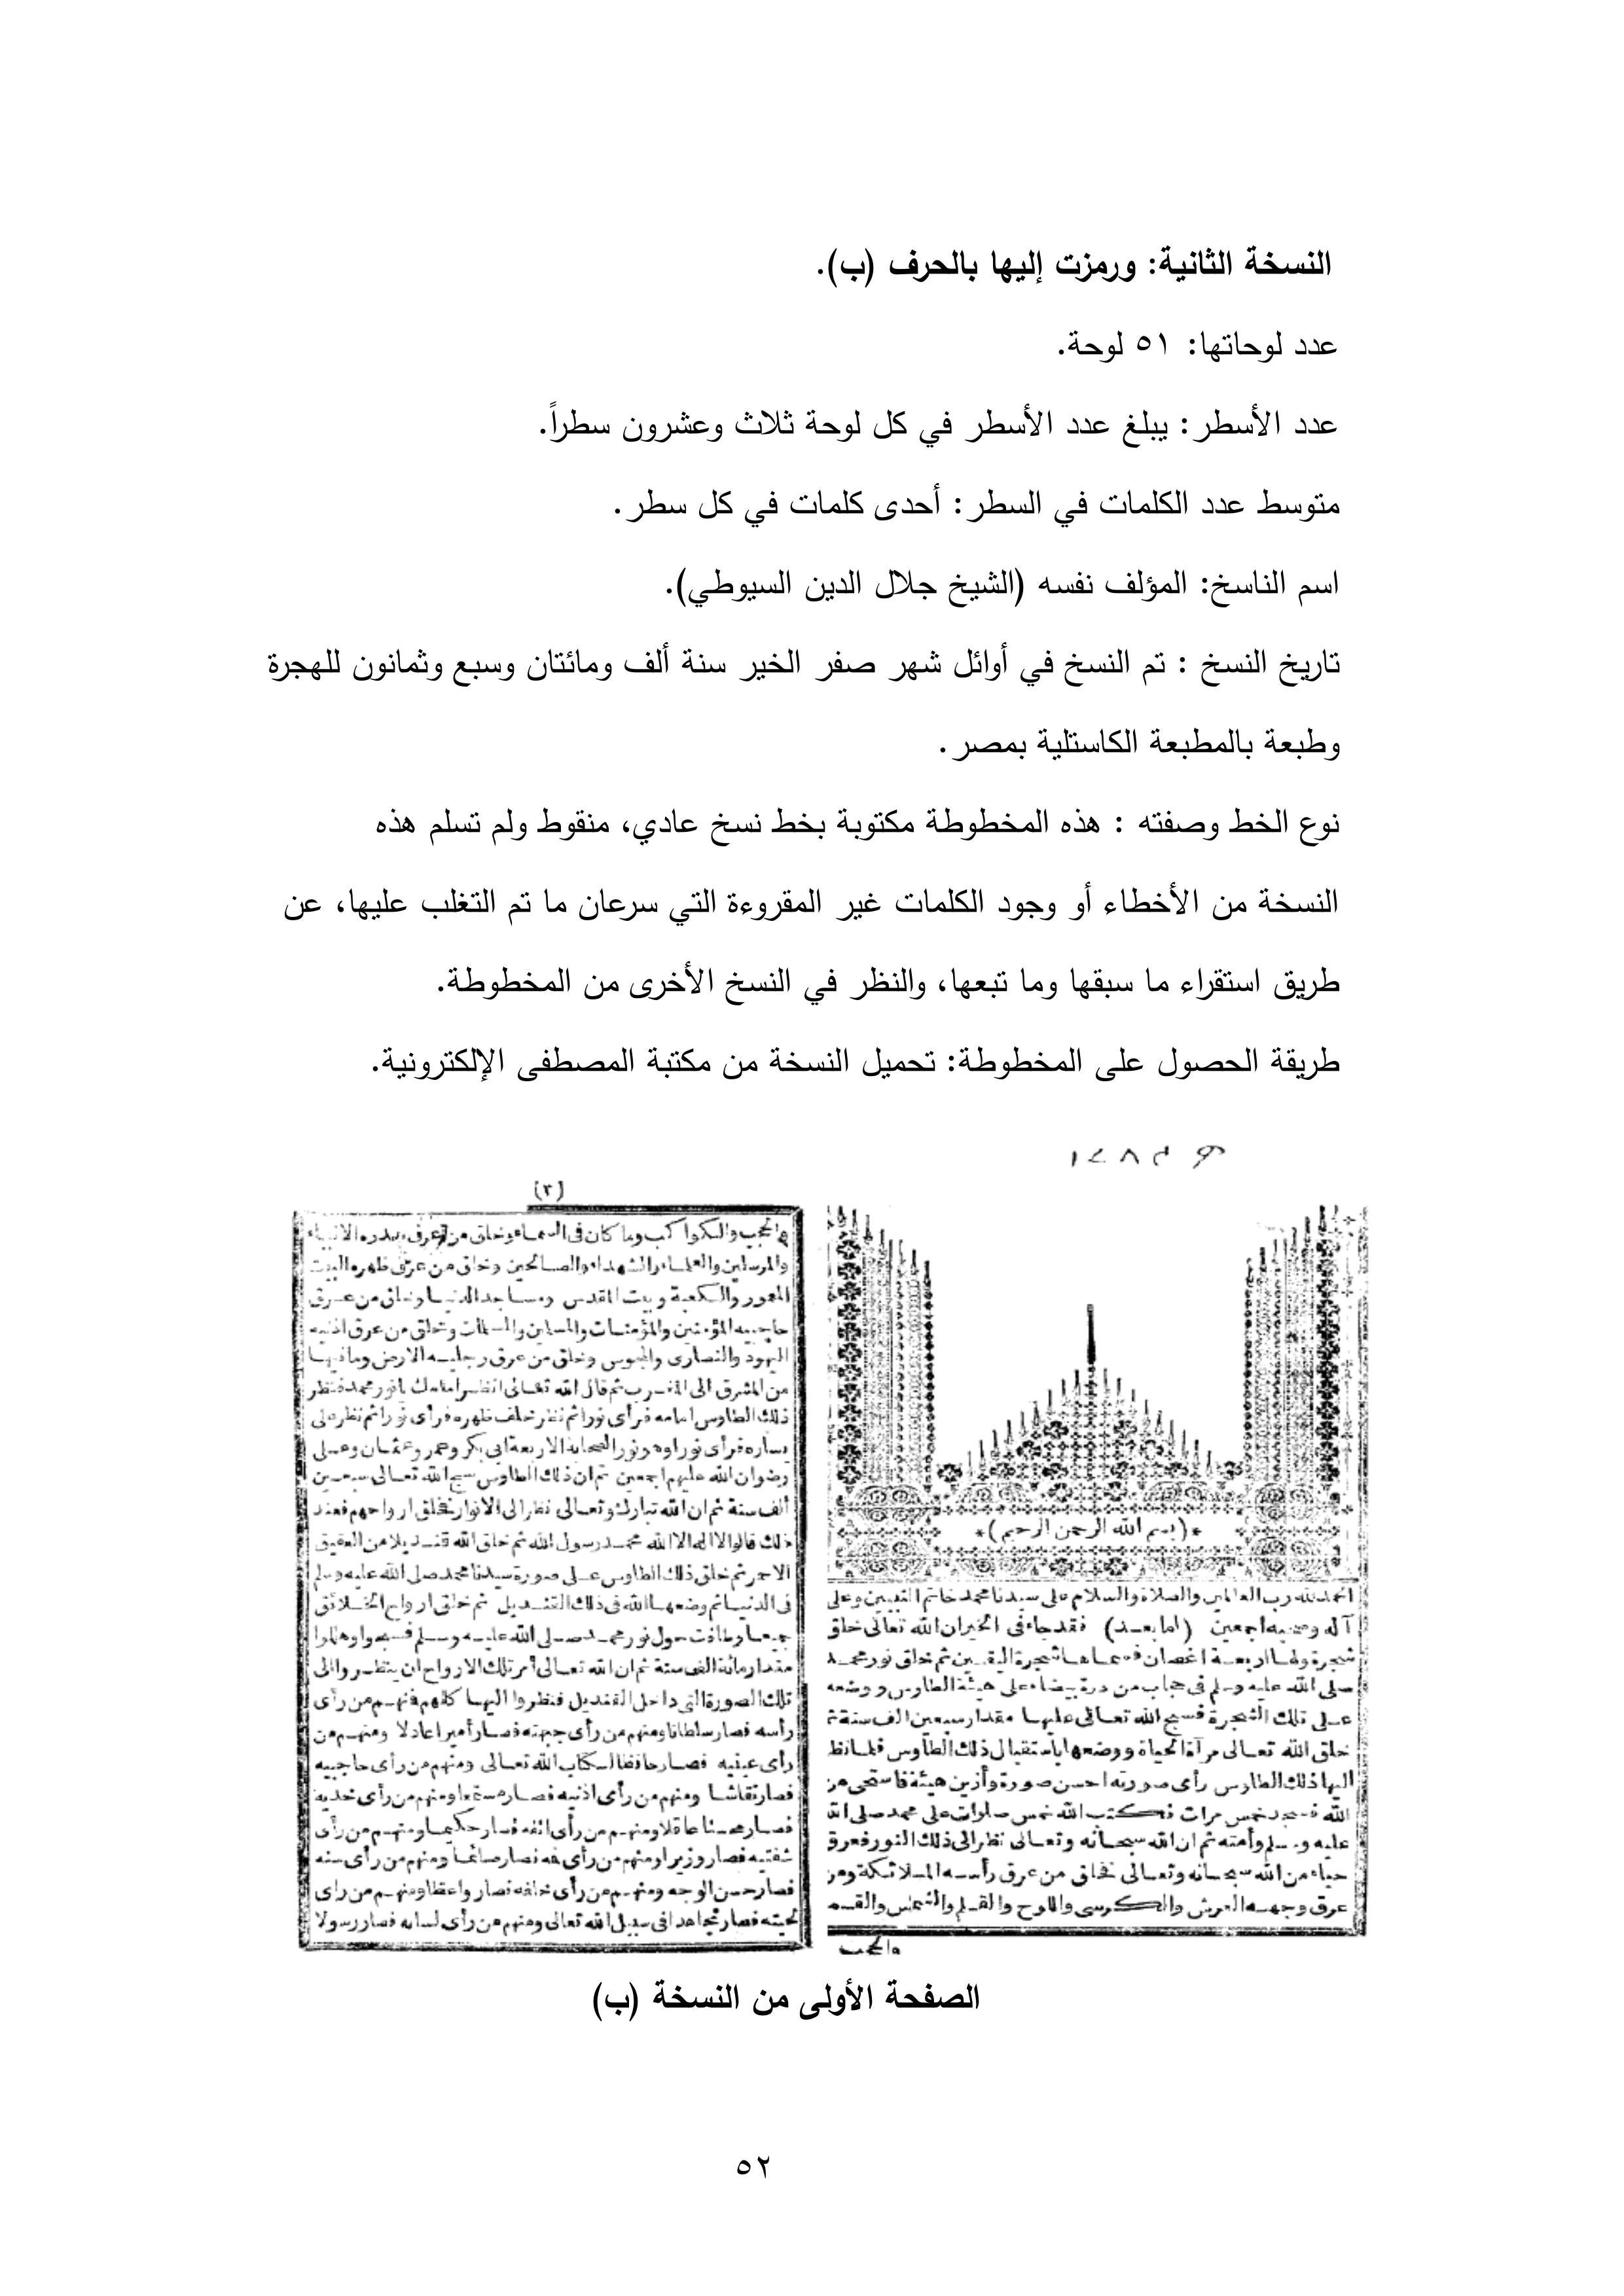 النسخة الثانية: ورمزت إليها بالحرف (ب).
عدد لوحاتها: ٥١ لوحة.
عدد الأسطر: يبلغ عدد الأسطر في كل لوحة ثلاث وعشرون سطراً.
متوسط عدد الكلمات في السطر: أحدى كلمات في كل سطر.
اسم الناسخ: المؤلف نفسه (الشيخ جلال الدين السيوطي).
تاريخ النسخ : تم النسخ في أوائل شهر صفر الخير سنة ألف ومائتان وسبع وثمانون للهجرة
وطبعة بالمطبعة الكاستلية بمصر.
نوع الخط وصفته : هذه المخطوطة مكتوبة بخط نسخ عادي، منقوط ولم تسلم هذه
النسخة من الأخطاء أو وجود الكلمات غير المقروءة التي سرعان ما تم التغلب عليها، عن
طريق استقراء ما سبقها وما تبعها، والنظر في النسخ الأخرى من المخطوطة.
طريقة الحصول على المخطوطة: تحميل النسخة من مكتبة المصطفى الإلكترونية.
*(بسم الله الرحمن الرحيم)*
الحمد لله رب العالمين والصلاة والسلام على سيدنا محمد خاتم النبيين وعلى
آله وصحبه اجمعين (اما بعد) فقد جاء فى الخبر ان الله تعالى خلق
شجرة ولها اربعة اغصان فسماها شجرة اليقين ثم خلق نور محمد
صلى الله عليه وسلم فى حجاب من درة بيضاء على هيئة الطاوس ووضعه
على تلك الشجرة فسبح الله تعالى عليها مقدار سبعين الف سنة ثم
خلق الله تعالى مرآة الحياة ووضعها باستقبال ذلك الطاوس فلما نظر
اليها ذلك الطاوس رأى صورته احسن صورة وأزين هيئة فاستحى من
الله فسجد خمس مرات فكتب الله خمس صلوات على محمد صلى الله
عليه وسلم وأمته ثم ان الله سبحانه وتعالى نظر الى ذلك النور فعرق
حياء من الله سبحانه وتعالى فخلق من عرق رأسه الملائكة ومن
عرق وجهه العرش والكرسى واللوح والقلم والشمس والقمر
والحجب
(٢)
والحجب والكواكب وما كان فى السماء وخلق من عرق صدره الانبياء
والمرسلين والعلماء والشهداء والصالحين وخلق من عرق ظهره البيت
المعمور والكعبة وبيت المقدس ومساجد الدنيا وخلق من عرق
حاجبيه المؤمنين والمؤمنات والمسلمين والمسلمات وخلق من عرق اذنيه
اليهود والنصارى والمجوس وخلق من عرق رجليه الارض وما فيها
من المشرق الى المغرب ثم قال الله تعالى انظر امامك يا نور محمد فنظر
ذلك الطاوس امامه فرأى نورا ثم نظر خلف ظهره فرأى نورا ثم نظر على
يساره فرأى نورا وهو نور الصحابة الاربعة ابى بكر وعمر وعثمان وعلى
رضوان الله عليهم اجمعين ثم ان ذلك الطاوس سبح الله تعالى سبعين
ألف سنة ثم ان الله تبارك وتعالى نظر الى الانوار فخلق ارواحهم فعند
ذلك قالوا لا اله الا الله محمد رسول الله ثم خلق الله قنديلا من العقيق
الاحمر ثم خلق ذلك الطاوس على صورة سيدنا محمد صلى الله عليه وسلم
فى الدنيا ثم وضعها الله فى ذلك القنديل ثم خلق ارواح الخلائق
جميعا وطافت حول نور محمد صلى الله عليه وسلم فسبحوا وهللوا
مقدار مائة الف سنة ثم ان الله تعالى أمر تلك الارواح ان ينظروا الى
تلك الصورة التى داخل القنديل فنظروا اليها كلهم فمنهم من رأى
رأسه فصار سلطانا ومنهم من رأى جبهته فصار أميرا عادلا ومنهم من
رأى عينيه فصار حافظا لكتاب الله تعالى ومنهم من رأى حاجبيه
فصار نقاشا ومنهم من رأى اذنيه فصار مستمعا ومنهم من رأى خديه
فصار محسنا عاقلا ومنهم من رأى انفه فصار حكيما ومنهم من رأى
شفتيه فصار وزيرا ومنهم من رأى فمه فصار صائما ومنهم من رأى سنه
فصار حسن الوجه ومنهم من رأى حلقه فصار واعظا ومنهم من رأى
لحيته فصار مجاهدا فى سبيل الله تعالى ومنهم من رأى لسانه فصار رسولا
الصفحة الأولى من النسخة (ب)
٥٢